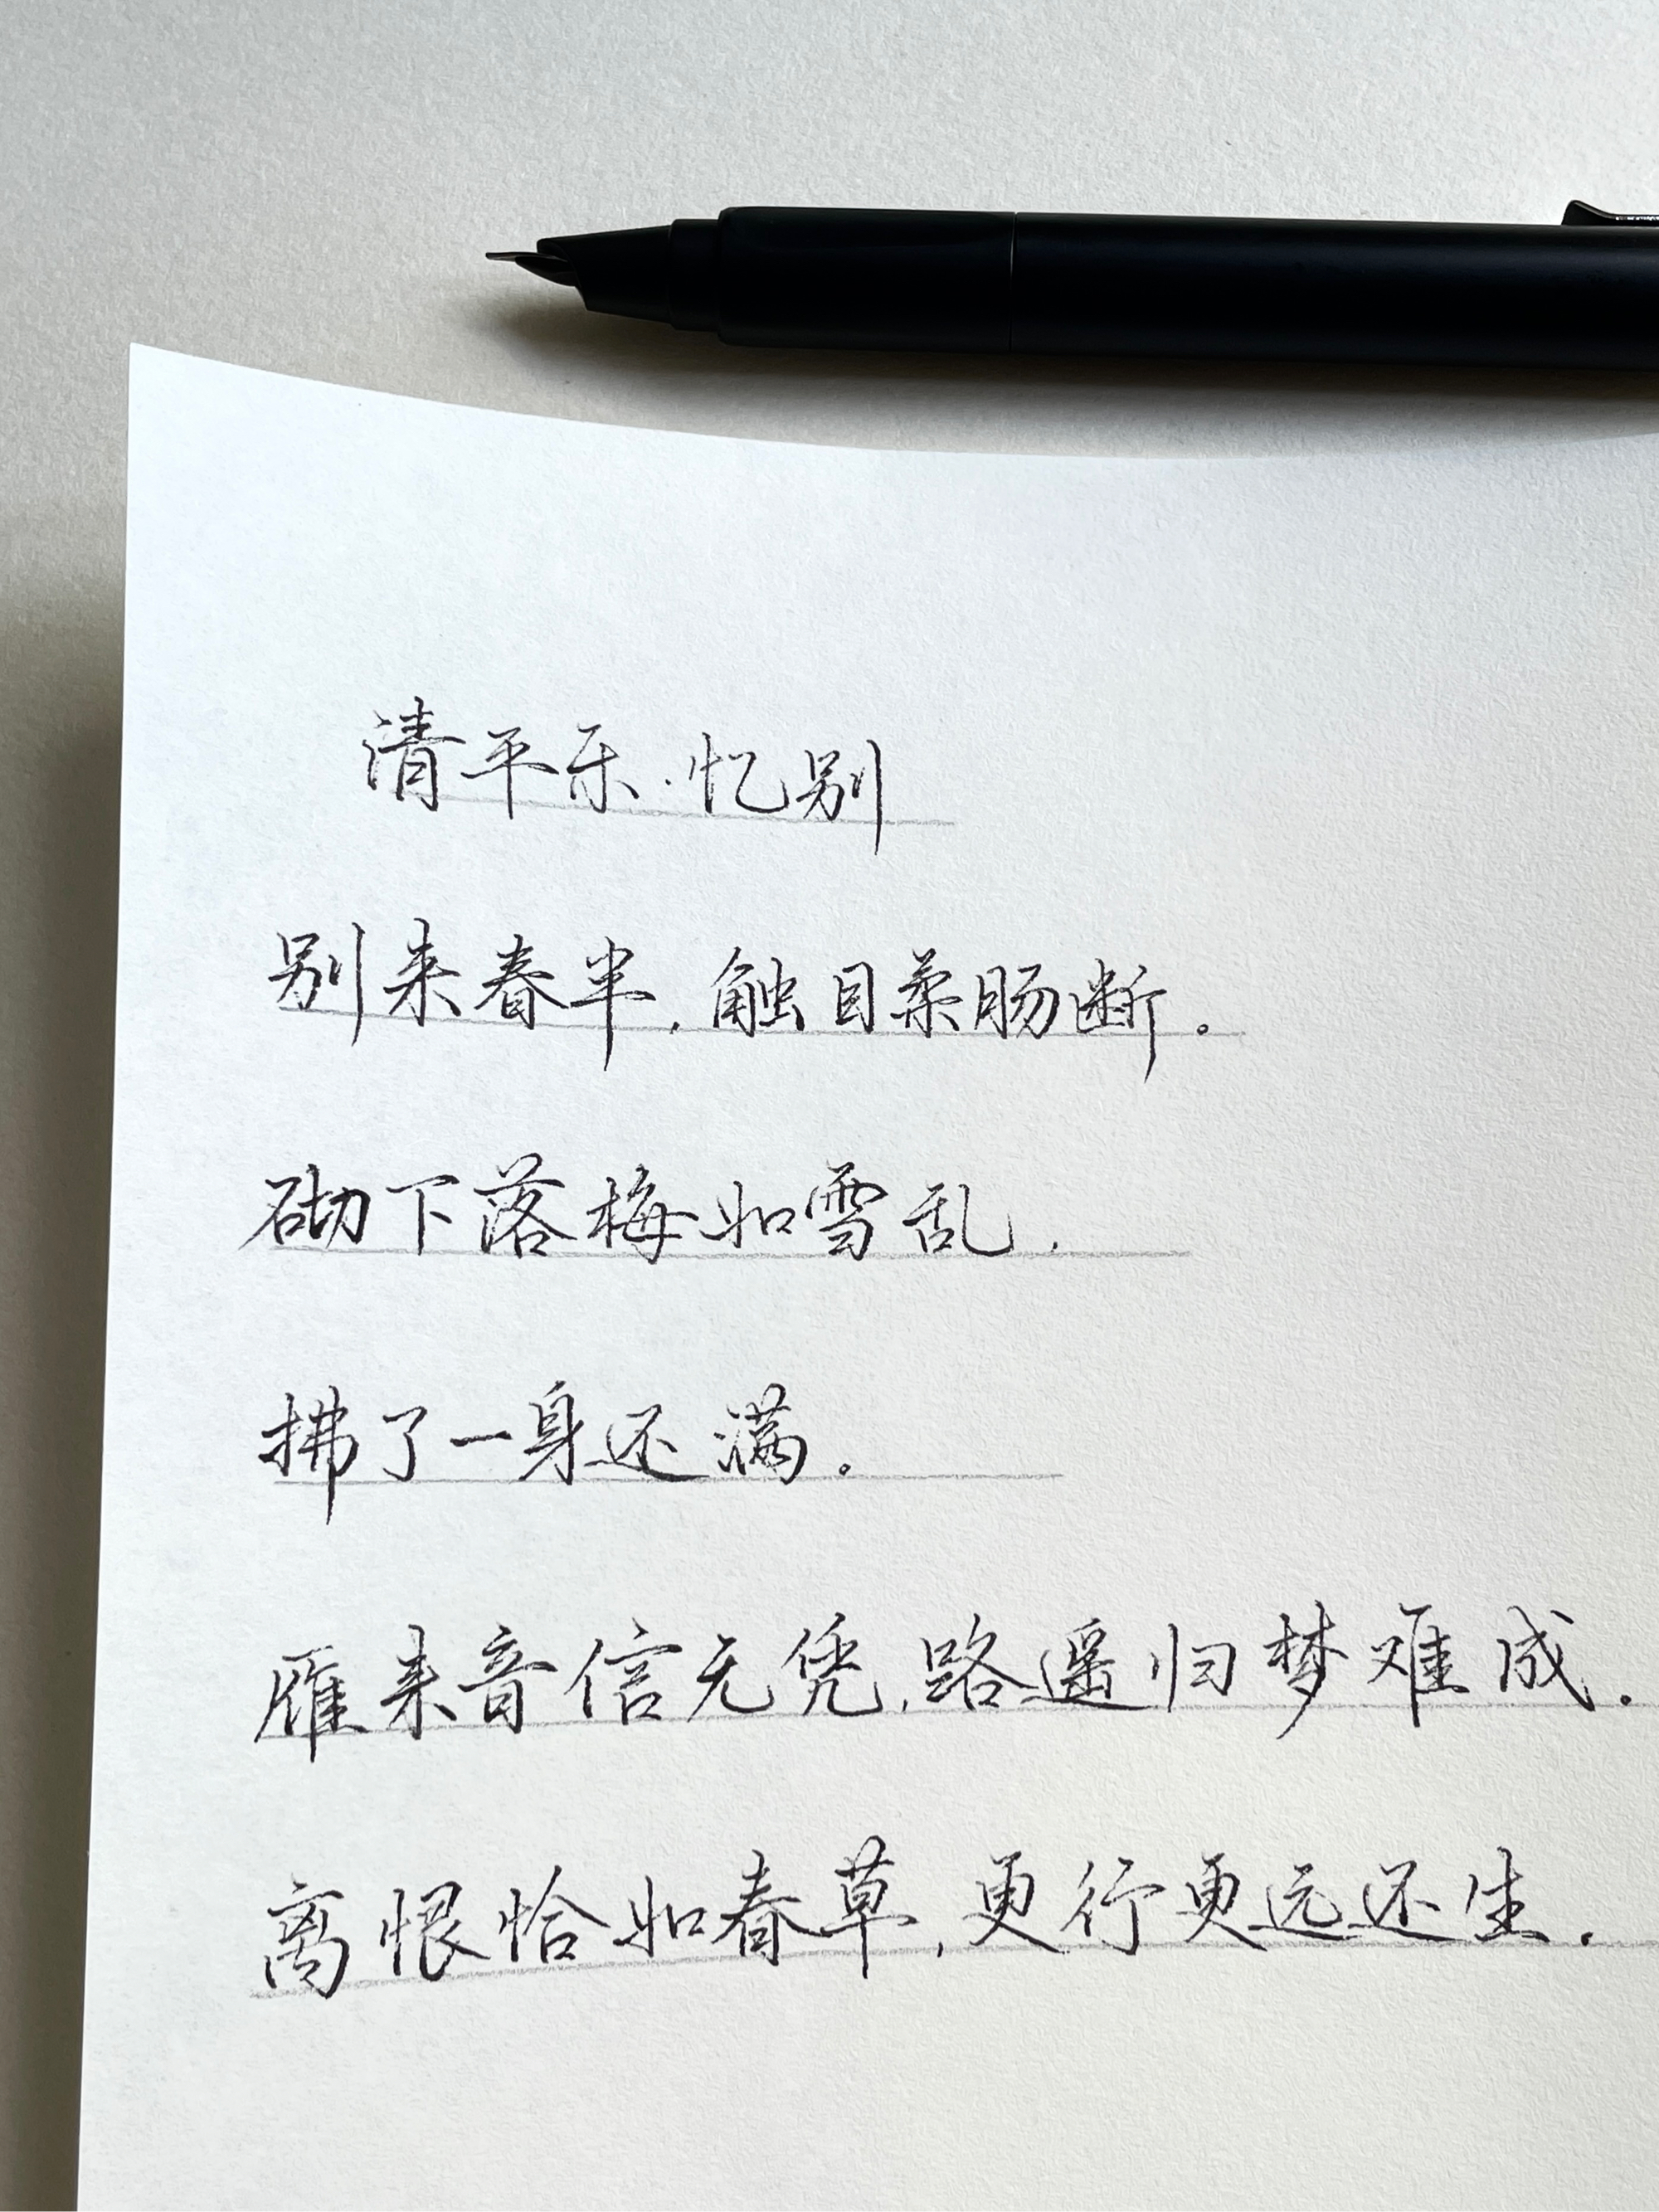 清平乐·忆别
别来春半，触目柔肠断。
砌下落梅如雪乱，
拂了一身还满。
雁来音信无凭，路遥归梦难成。
离恨恰如春草，更行更远还生。